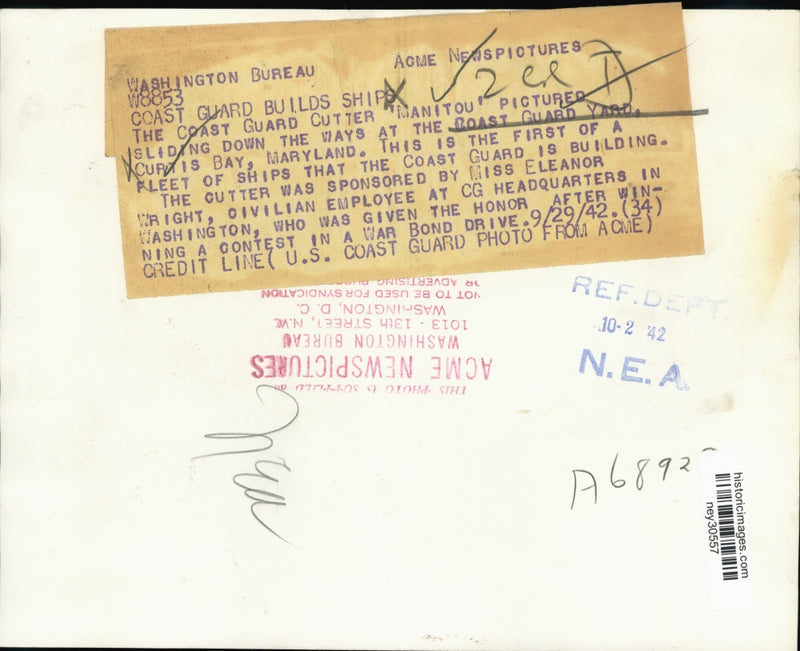 WASHINGTON BUREAU ACME NEWSPICTURES
W8853
COAST GUARD BUILDS SHIPS
THE COAST GUARD CUTTER 'MANITOU' PICTURED
SLIDING DOWN THE WAYS AT THE COAST GUARD YARD,
CURTIS BAY, MARYLAND. THIS IS THE FIRST OF A
FLEET OF SHIPS THAT THE COAST GUARD IS BUILDING.
THE CUTTER WAS SPONSORED BY MISS ELEANOR
WRIGHT, CIVILIAN EMPLOYEE AT CG HEADQUARTERS IN
WASHINGTON, WHO WAS GIVEN THE HONOR AFTER WIN-
NING A CONTEST IN A WAR BOND DRIVE. 9/29/42. (34)
CREDIT LINE( U.S. COAST GUARD PHOTO FROM ACME)
THIS PHOTO IS SUPPLIED BY
ACME NEWSPICTURES
WASHINGTON BUREAU
1013 - 13th STREET, N.W.
WASHINGTON, D. C.
NOT TO BE USED FOR SYNDICATION
OR ADVERTISING
REF. DEPT.
10-2 '42
N.E.A.
A6892
historicimages.com
ney30557